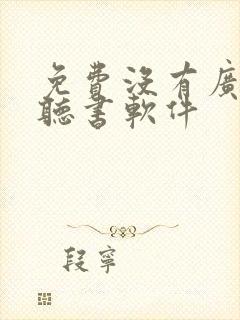 免費沒有廣
聽書軟件
段寧